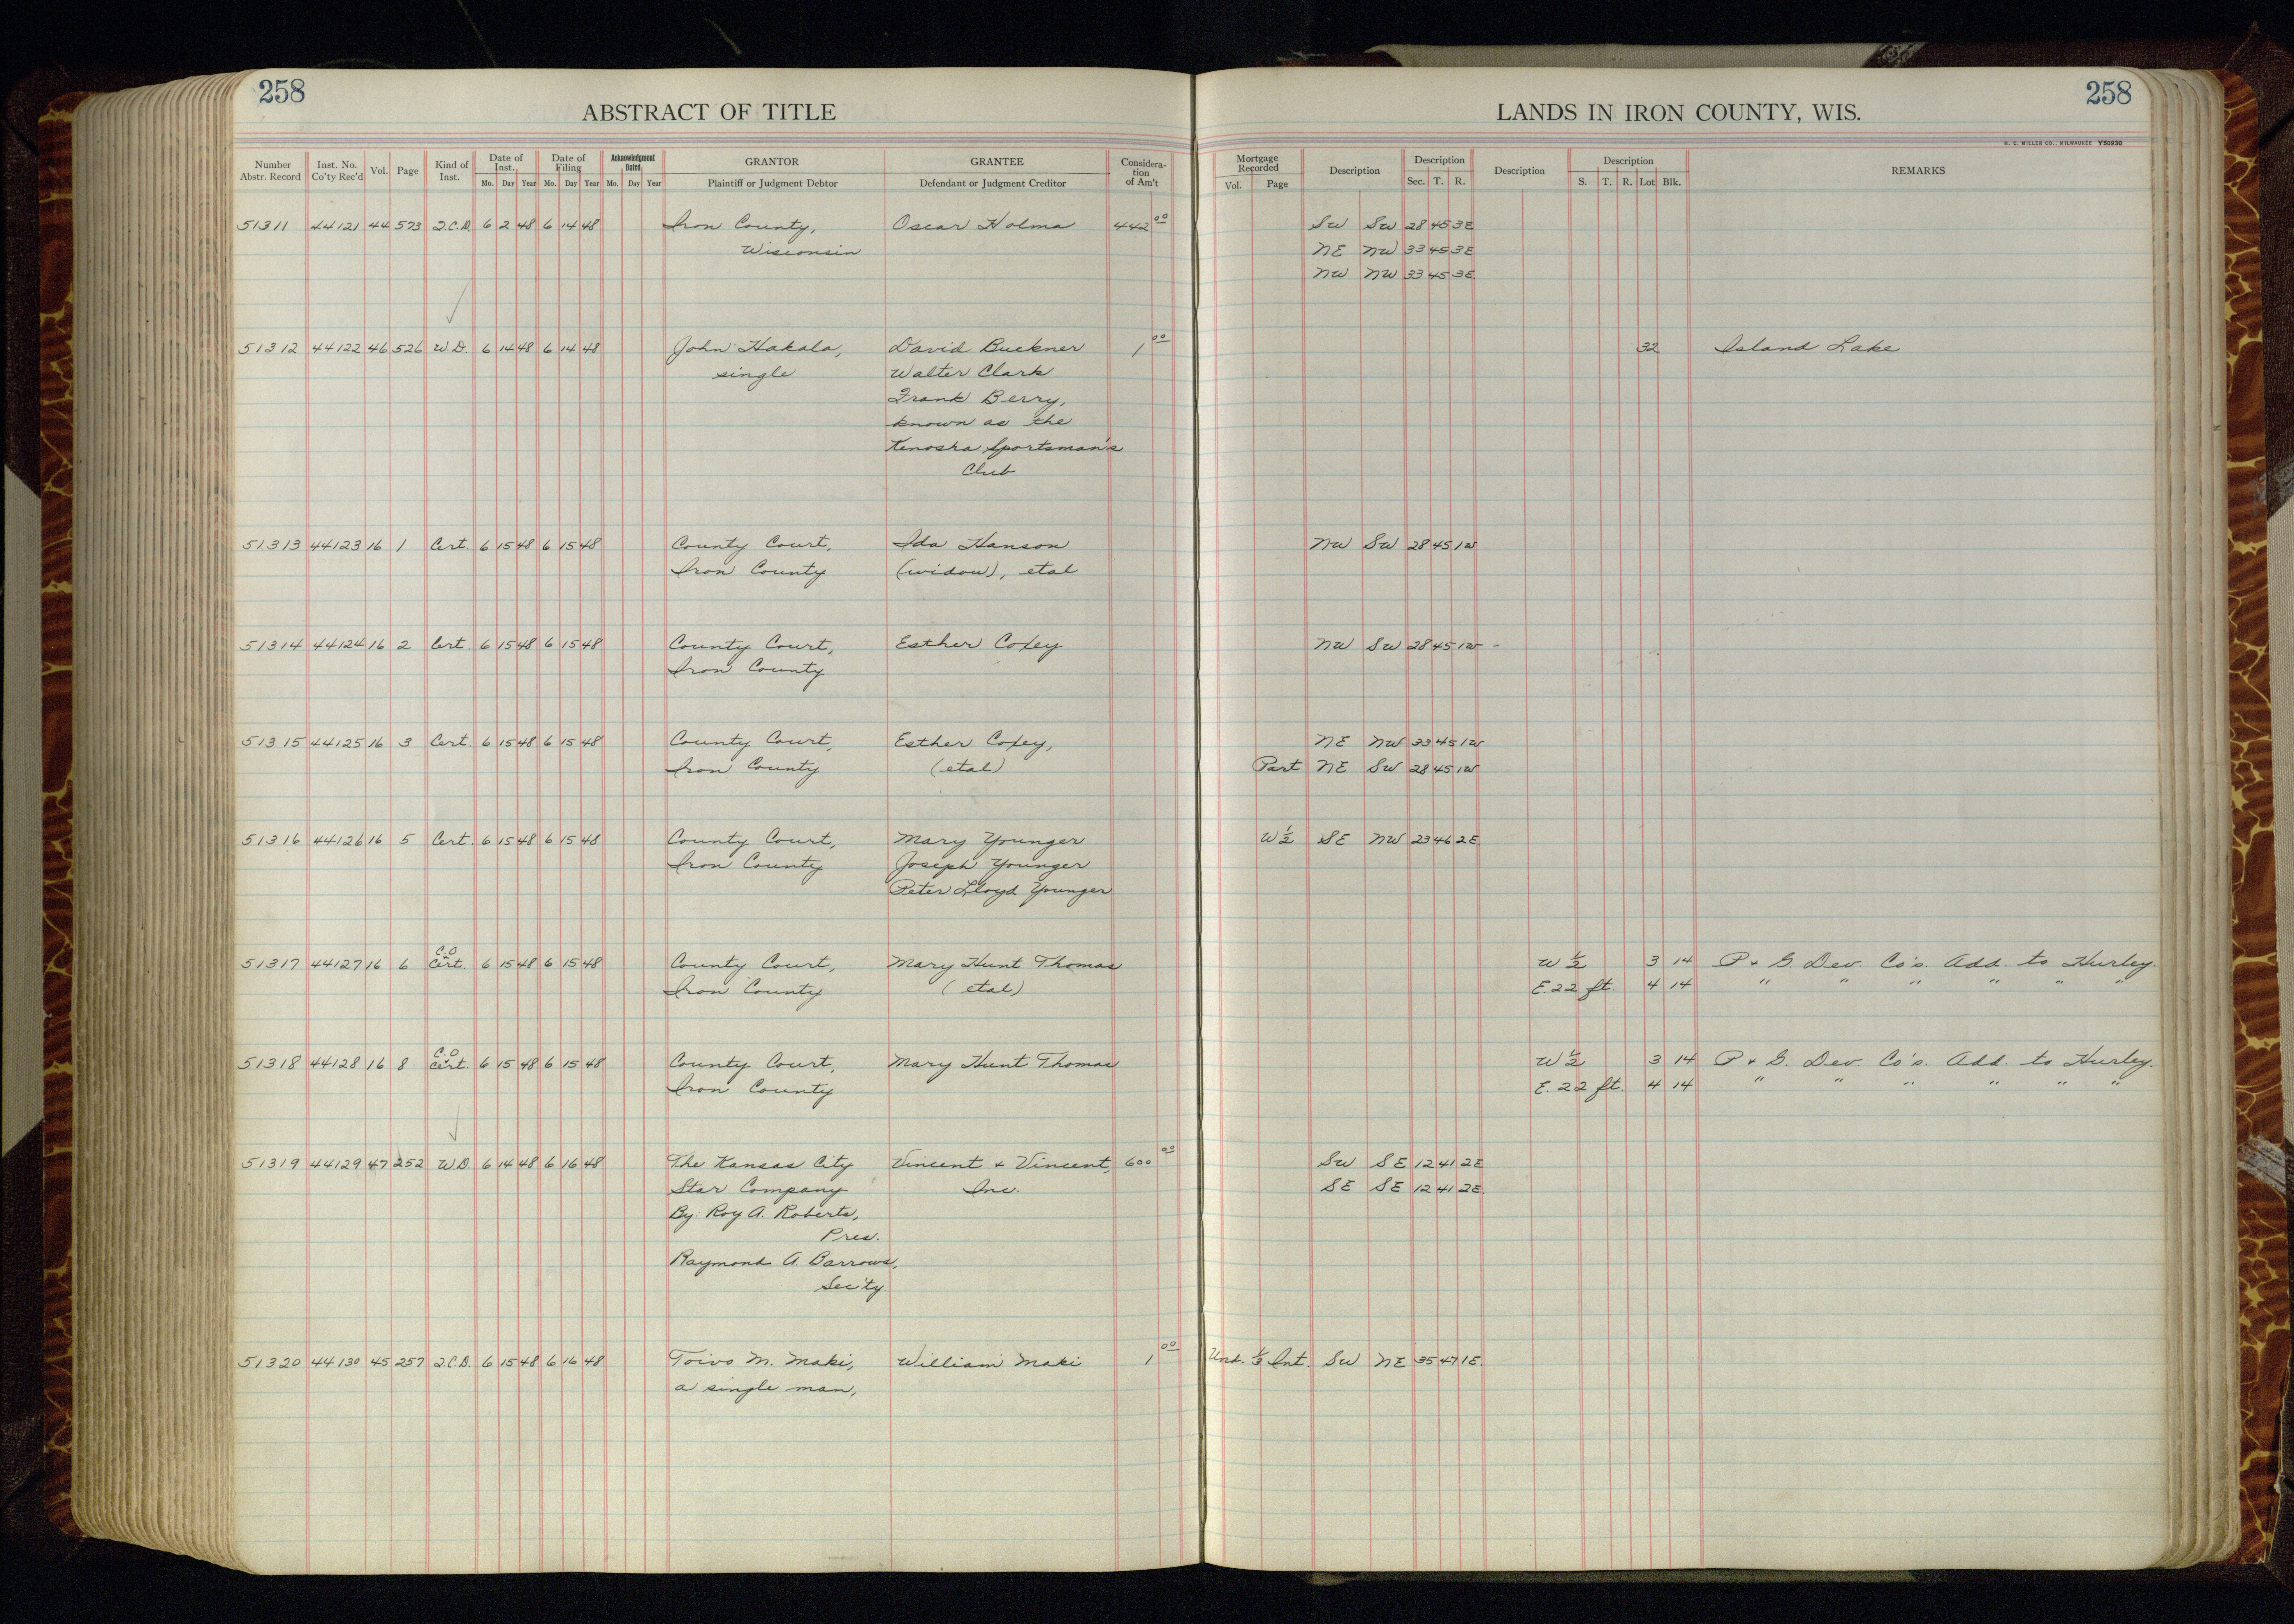 258
ABSTRACT OF TITLE
LANDS IN IRON COUNTY, WIS.
258
H. C. MILLER CO., MILWAUKEE Y50930
Number Abstr. Record Inst. No. Co'ty Rec'd Vol. Page Kind of Inst. Date of Inst. Mo. Day Year Date of Filing Mo. Day Year Acknowledgment Dated Mo. Day Year GRANTOR Plaintiff or Judgment Debtor GRANTEE Defendant or Judgment Creditor Consideration of Am't Mortgage Recorded Vol. Page Description Description Sec. T. R. Description Description S. T. R. Lot Blk. REMARKS
51311 44121 44 573 Q.C.D. 6 2 48 6 14 48 Iron County, Oscar Holma 442 00 SW SW 28 45 3E
Wisconsin NE NW 33 45 3E
NW NW 33 45 3E
51312 44122 46 526 W.D. 6 14 48 6 14 48 John Hakala, David Buckner 1 00 32 Island Lake
single Walter Clark
Frank Berry,
known as the
Kenosha Sportsman's
Club
51313 44123 16 1 Cert. 6 15 48 6 15 48 County Court, Ida Hanson NW SW 28 45 1W
Iron County (widow), etal
51314 44124 16 2 Cert. 6 15 48 6 15 48 County Court, Esther Coxey NW SW 28 45 1W -
Iron County
51315 44125 16 3 Cert. 6 15 48 6 15 48 County Court, Esther Coxey, NE NW 33 45 1W
Iron County (etal) Part NE SW 28 45 1W
51316 44126 16 5 Cert. 6 15 48 6 15 48 County Court, Mary Younger W 1/2 SE NW 23 46 2E
Iron County Joseph Younger
Peter Lloyd Younger
C.O
51317 44127 16 6 Cert. 6 15 48 6 15 48 County Court, Mary Hunt Thomas W 1/2 3 14 P + G. Dev. Co's. Add. to Hurley.
Iron County (etal) E. 22 ft. 4 14 " " " " " "
C.O
51318 44128 16 8 Cert. 6 15 48 6 15 48 County Court, Mary Hunt Thomas W 1/2 3 14 P + G. Dev. Co's. Add. to Hurley.
Iron County E. 22 ft. 4 14 " " " " " "
51319 44129 47 252 W.D. 6 14 48 6 16 48 The Kansas City Vincent + Vincent, 600 00 SW SE 12 41 2E
Star Company Inc. SE SE 12 41 2E.
By: Roy A. Roberts,
Pres.
Raymond A Barrows,
Sec'ty
51320 44130 45 257 Q.C.D. 6 15 48 6 16 48 Toivo M. Maki, William Maki 1 00 Und. 1/3 Int. SW NE 35 47 1E.
a single man,